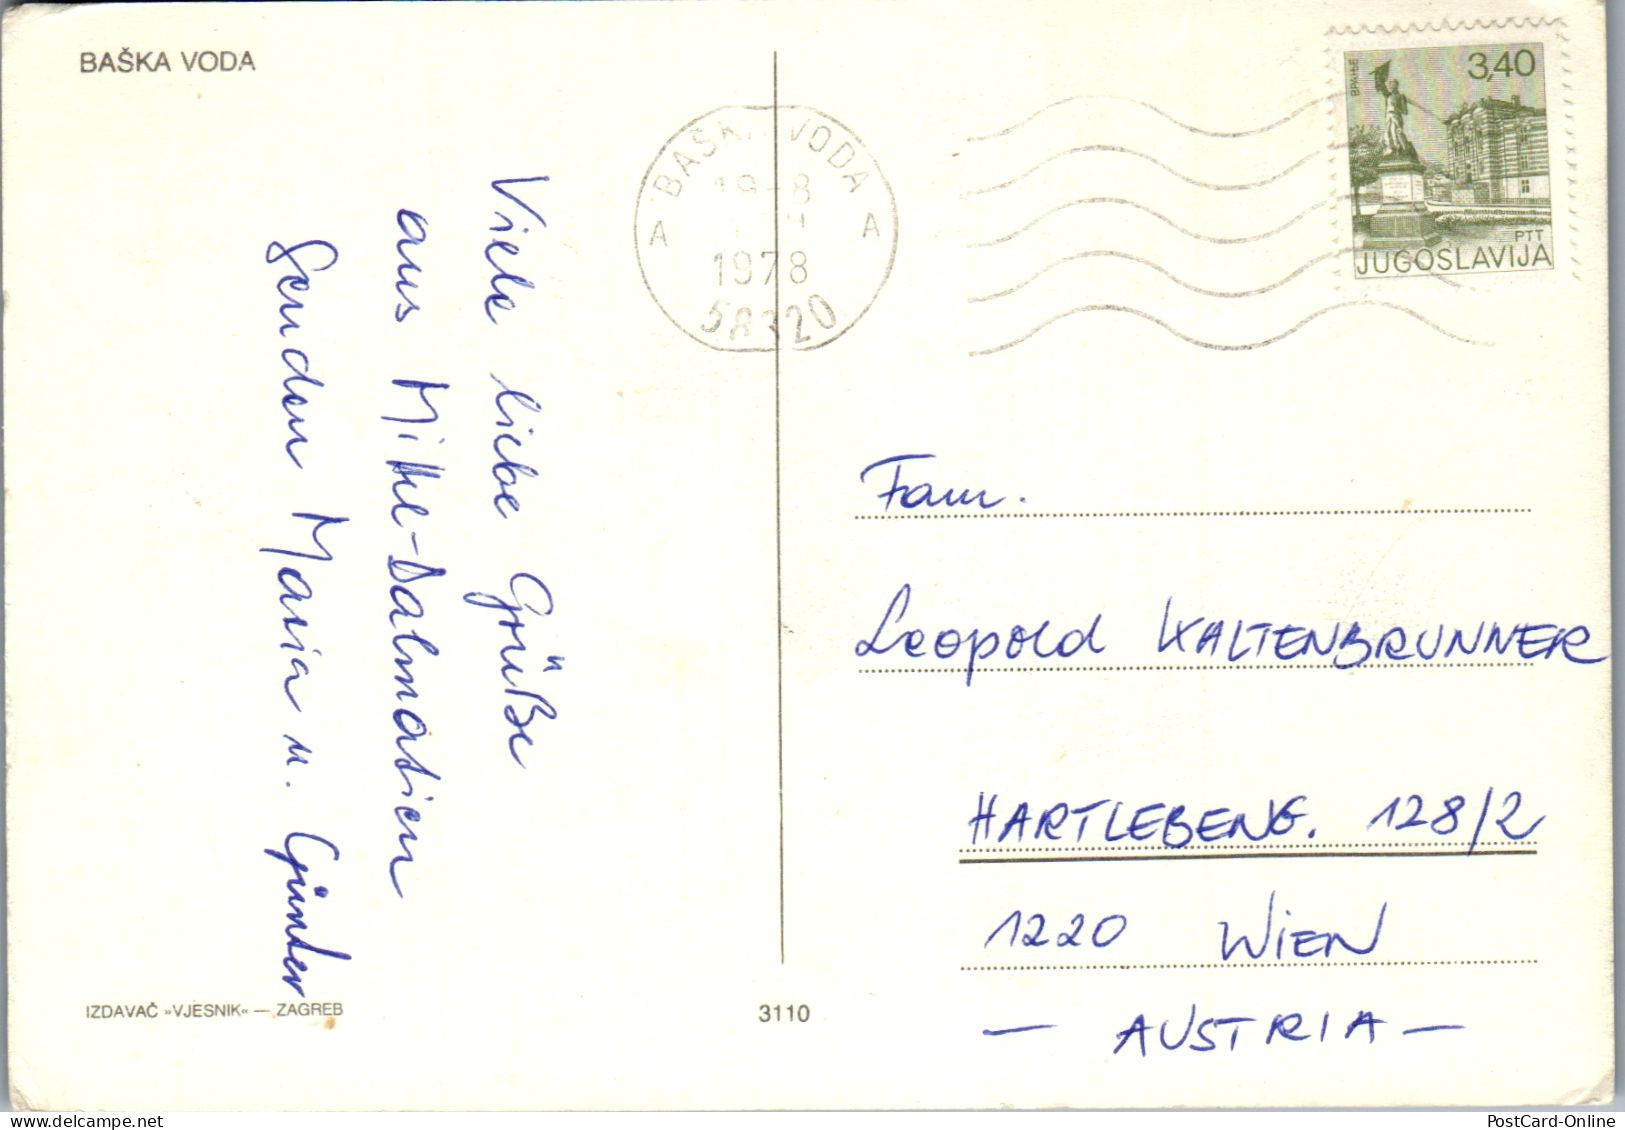 BAŠKA VODA
Viele liebe Grüße
aus Mittel-Dalmatien
senden Maria u. Günter
IZDAVAČ »VJESNIK« — ZAGREB
3110
BAŠKA VODA
A A
1978
58320
ВРАЊЕ
3,40
PTT
JUGOSLAVIJA
Fam.
Leopold KALTENBRUNNER
HARTLEBENG. 128/2
1220 WIEN
— AUSTRIA —
PostCard-Online